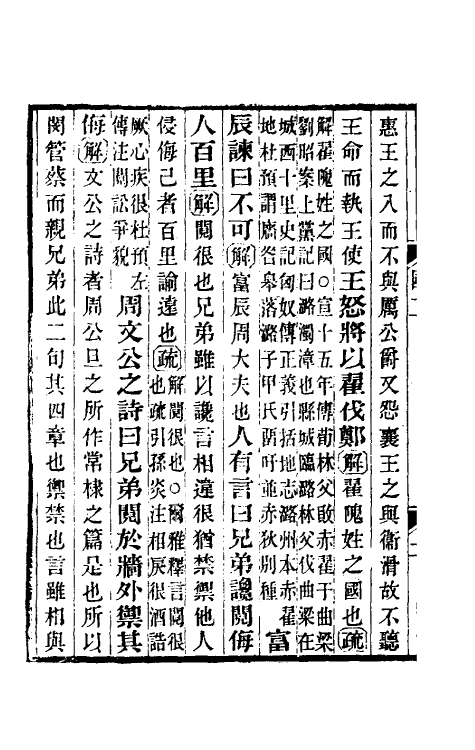 惠王之入而不與厲公爵又怨襄王之與衞滑故不聽
王命而執王使王怒將以翟伐鄭解翟隗姓之國也疏
解翟隗姓之國○宣十五年傳荀林父敗赤翟于曲梁
劉昭案上黨記曰潞濁漳也縣城臨潞林父伐曲梁在
城西十里史記匈奴傳正義引括地志潞州本赤翟
地杜預謂廧咎臯落潞子甲氏留吁並赤狄別種
富
辰諫曰不可解富辰周大夫也人有言曰兄弟讒鬩侮
人百里解鬩很也兄弟雖以讒言相違很猶禁禦他人
侵侮己者百里諭遠也疏
解鬩很也○爾雅釋言鬩很
也疏引孫炎注相戾很酒誥
厥心疾很杜預左
傳注鬩訟爭貌
周文公之詩曰兄弟鬩於牆外禦其
侮解文公之詩者周公旦之所作常棣之篇是也所以
閔管蔡而親兄弟此二句其四章也禦禁也言雖相與